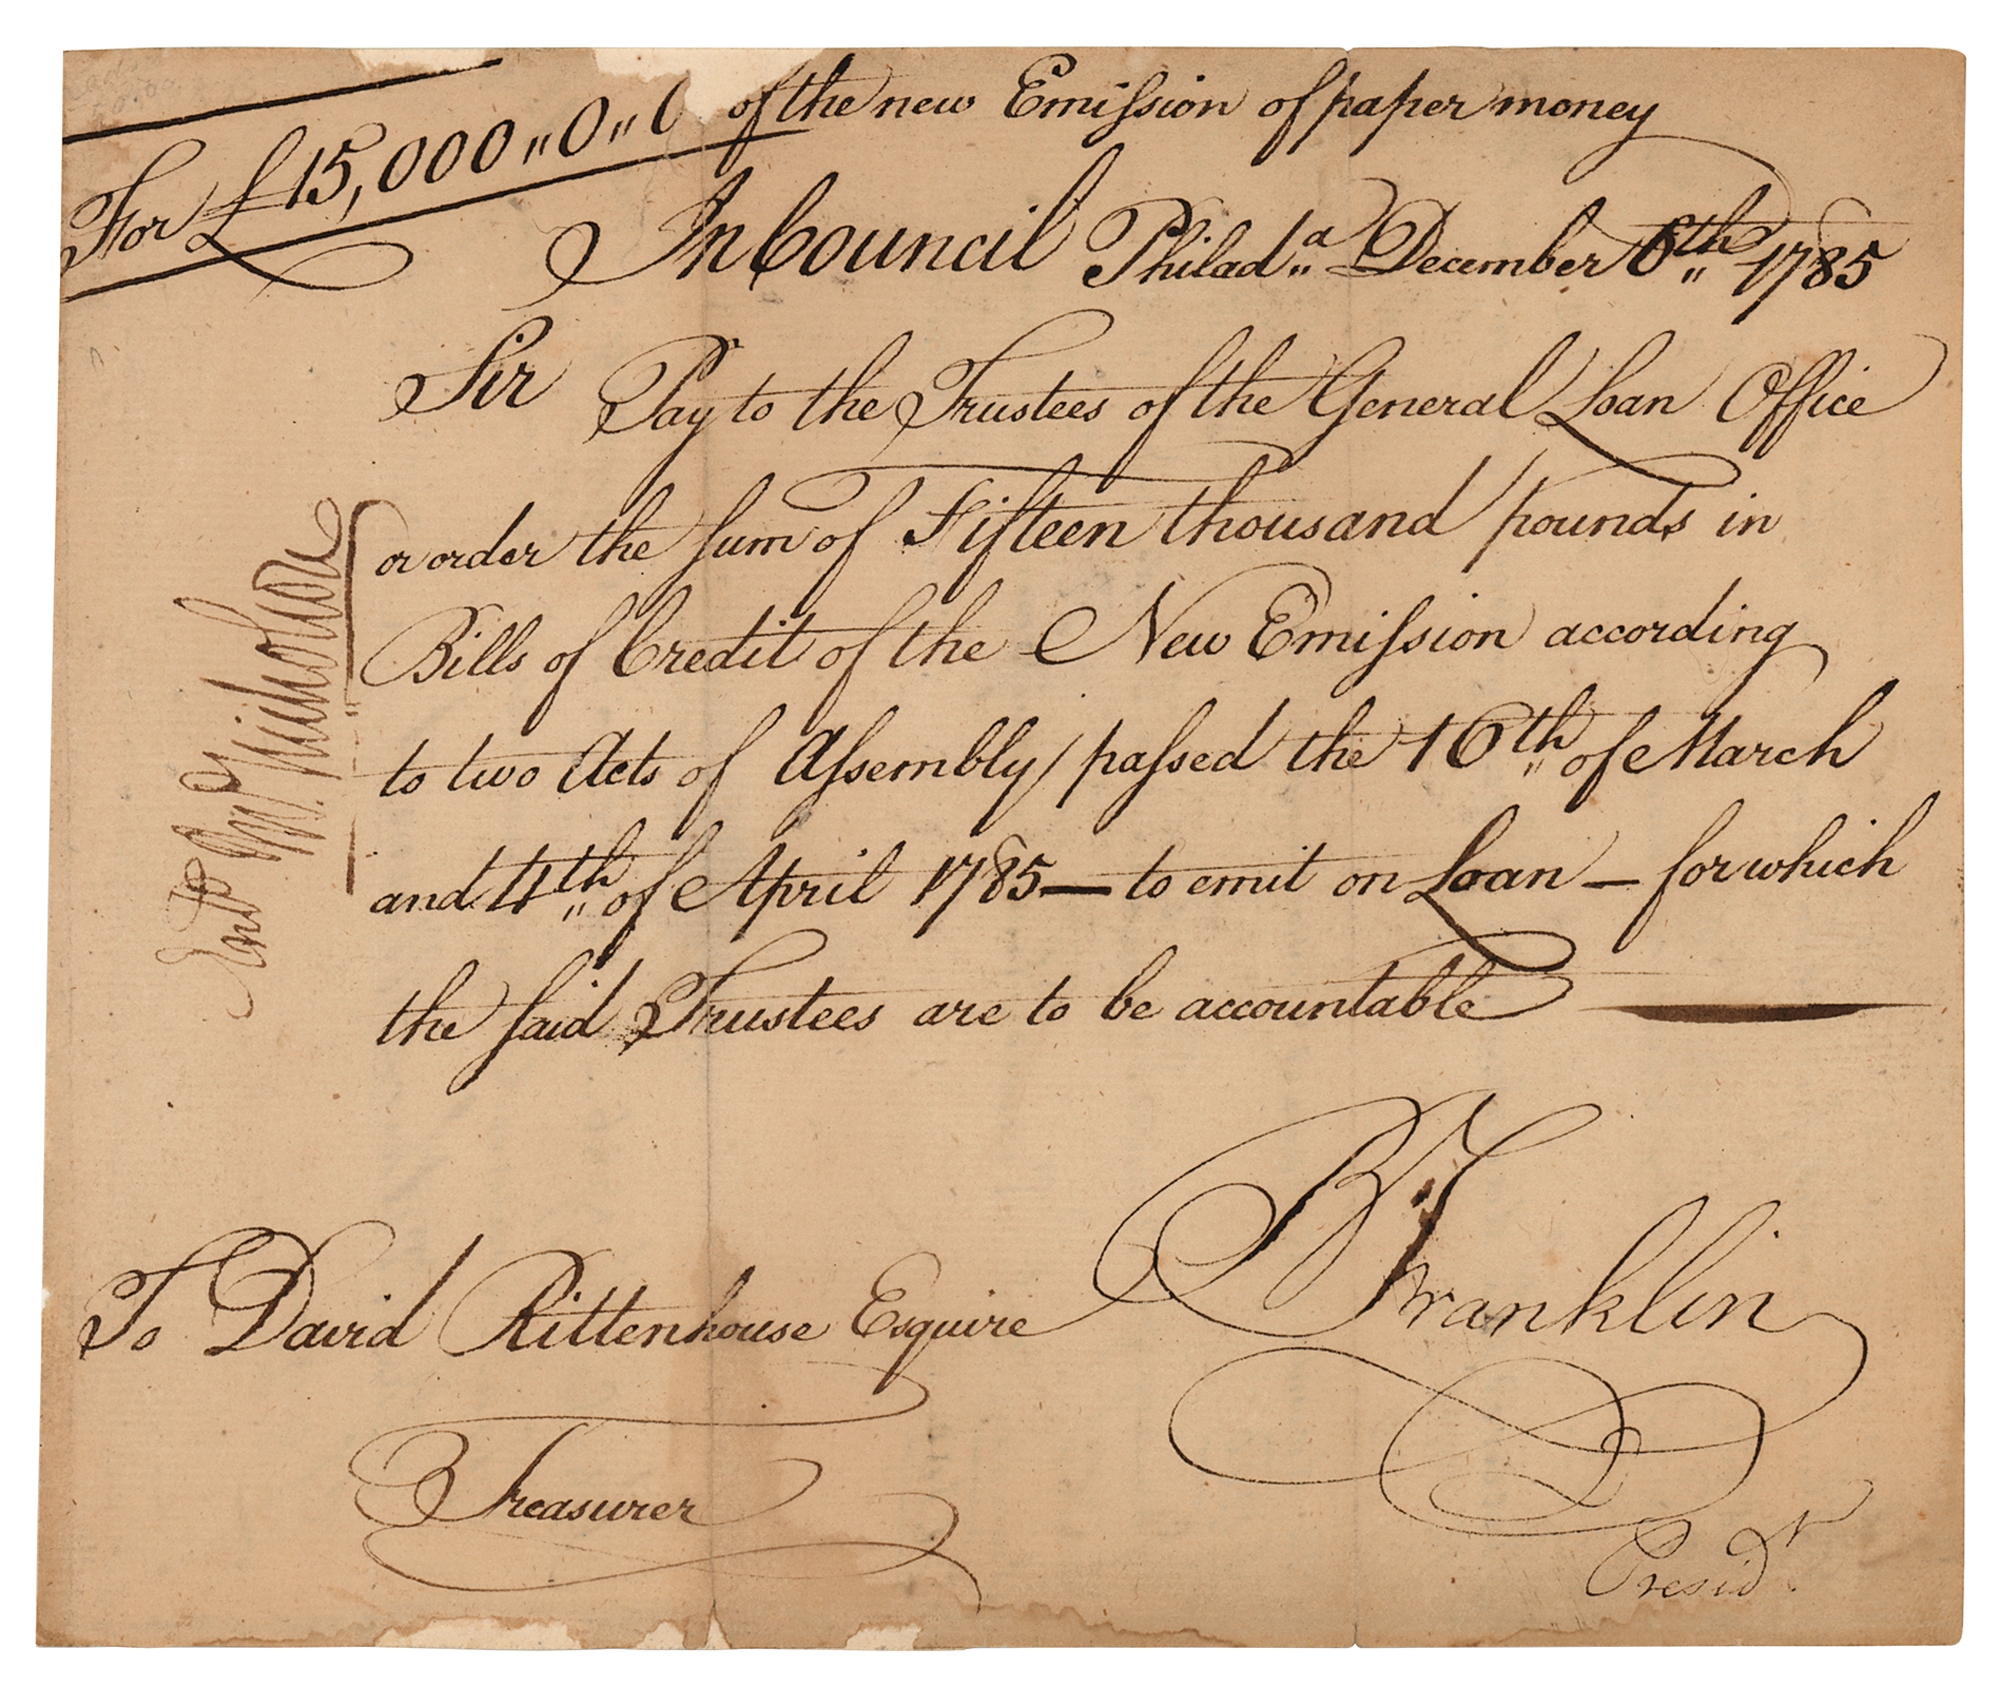 For £15,000,,0,,0 of the new Emiſsion of paper money
In Council Philad,,a December 6,,th 1785
Sir Pay to the Trustees of the General Loan Office
or order the ſum of Fifteen thousand pounds in
Bills of Credit of the New Emiſsion according
to two Acts of Aſsembly paſsed the 16,,th of March
and 4,,th of April 1785 — to emit on Loan — for which
the ſaid Trustees are to be accountable
B Franklin
Presidt.
To David Rittenhouse Esquire
Treasurer
Entd Jno. Nicholson